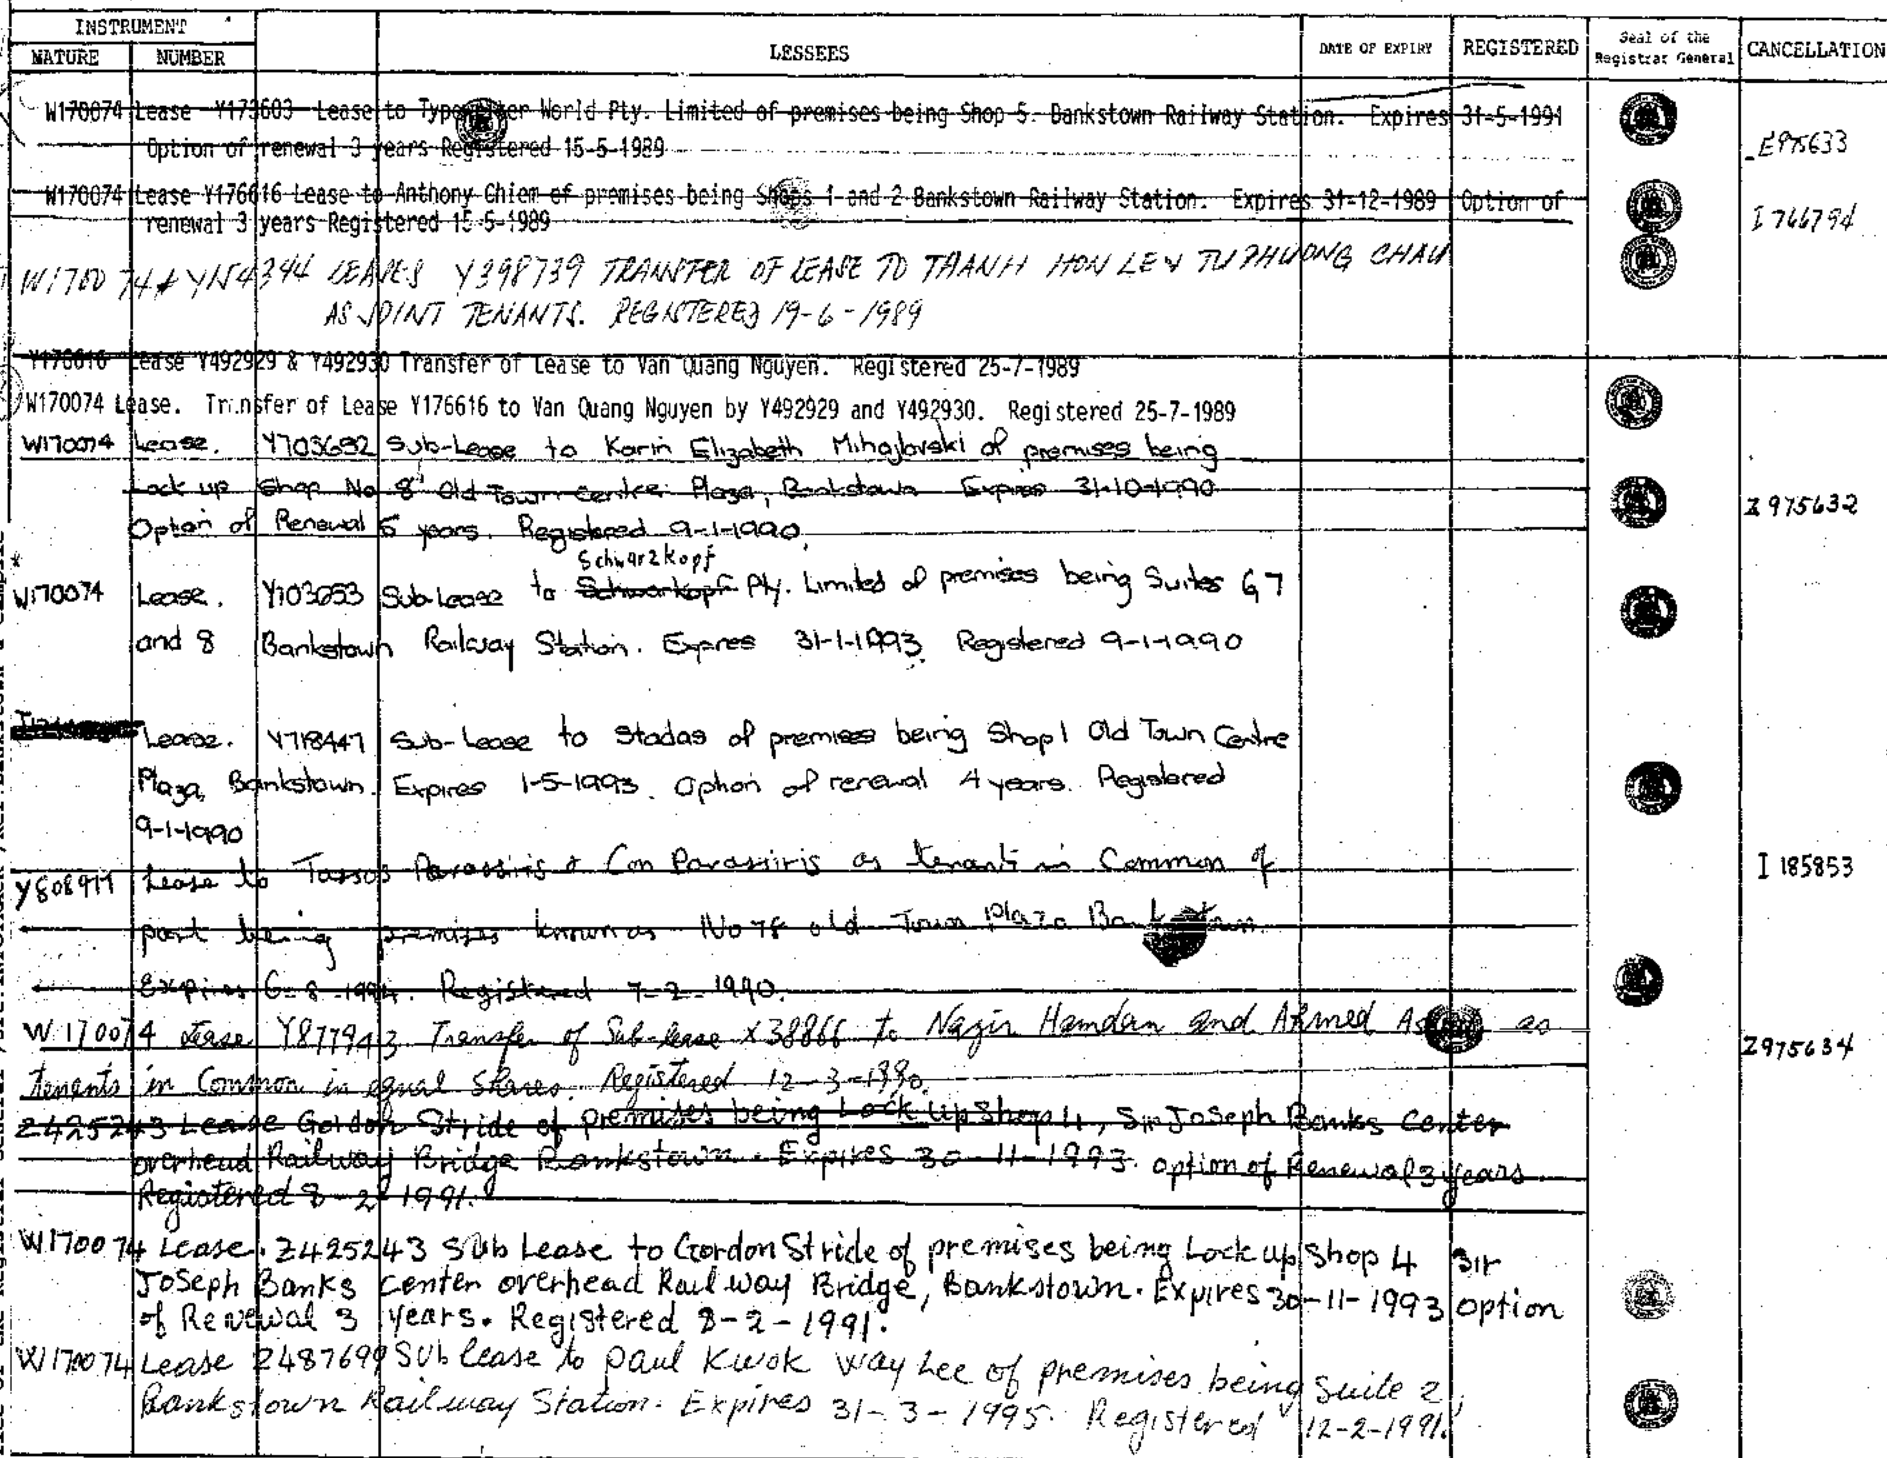 INSTRUMENT
NATURE NUMBER LESSEES DATE OF EXPIRY REGISTERED Seal of the Registrar General CANCELLATION
W170074 Lease Y173603 Lease to Typewriter World Pty. Limited of premises being Shop 5. Bankstown Railway Station. Expires 31-5-1991
Option of renewal 3 years Registered 15-5-1989
E975633
W170074 Lease Y176616 Lease to Anthony Chiem of premises being Shops 1 and 2 Bankstown Railway Station. Expires 31-12-1989 Option of
renewal 3 years Registered 15-5-1989
I766794
W170074 & Y154344 LEASES Y398739 TRANSFER OF LEASE TO THANH HON LE & TU PHUONG CHAU
AS JOINT TENANTS. REGISTERED 19-6-1989
Y176616 Lease Y492929 & Y492930 Transfer of Lease to Van Quang Nguyen. Registered 25-7-1989
W170074 Lease. Transfer of Lease Y176616 to Van Quang Nguyen by Y492929 and Y492930. Registered 25-7-1989
W170074 Lease. Y703652 Sub-Lease to Karin Elizabeth Mihajlovski of premises being
Lock up Shop No 8 Old Town Centre Plaza, Bankstown Expires 31-10-1990
Z975632
Option of Renewal 5 years. Registered 9-1-1990
Schwarzkopf
W170074 Lease. Y703653 Sub-Lease to Schwarkopf Pty. Limited of premises being Suites 6, 7
and 8 Bankstown Railway Station. Expires 31-1-1993. Registered 9-1-1990
Lease. Y718447 Sub-Lease to Stadas of premises being Shop 1 Old Town Centre
Plaza, Bankstown. Expires 1-5-1993. Option of renewal 4 years. Registered
9-1-1990
Y808977 Lease to Tassos Parassiris & Con Parassiris as tenants in Common of
I 185853
part being premises known as No 78 old Town Plaza Bankstown.
Expires 6-8-1994. Registered 7-2-1990.
W170074 Lease Y877943 Transfer of Sub-lease X38866 to Nazir Hamdan and Ahmed as
Z975634
tenants in Common in equal shares. Registered 12-3-1990.
Z425243 Lease Gordon Stride of premises being Lock up Shop 4, Sir Joseph Banks Center
overhead Railway Bridge Bankstown. Expires 30-11-1993. option of Renewal 3 years
Registered 8-2-1991.
W170074 Lease. Z425243 Sub Lease to Gordon Stride of premises being Lock up Shop 4 Sir
Joseph Banks Center overhead Railway Bridge, Bankstown. Expires 30-11-1993 option
of Renewal 3 years. Registered 8-2-1991.
W170074 Lease Z487699 Sub lease to Paul Kwok Way Lee of premises being Suite 2,
Bankstown Railway Station. Expires 31-3-1995. Registered 12-2-1991.